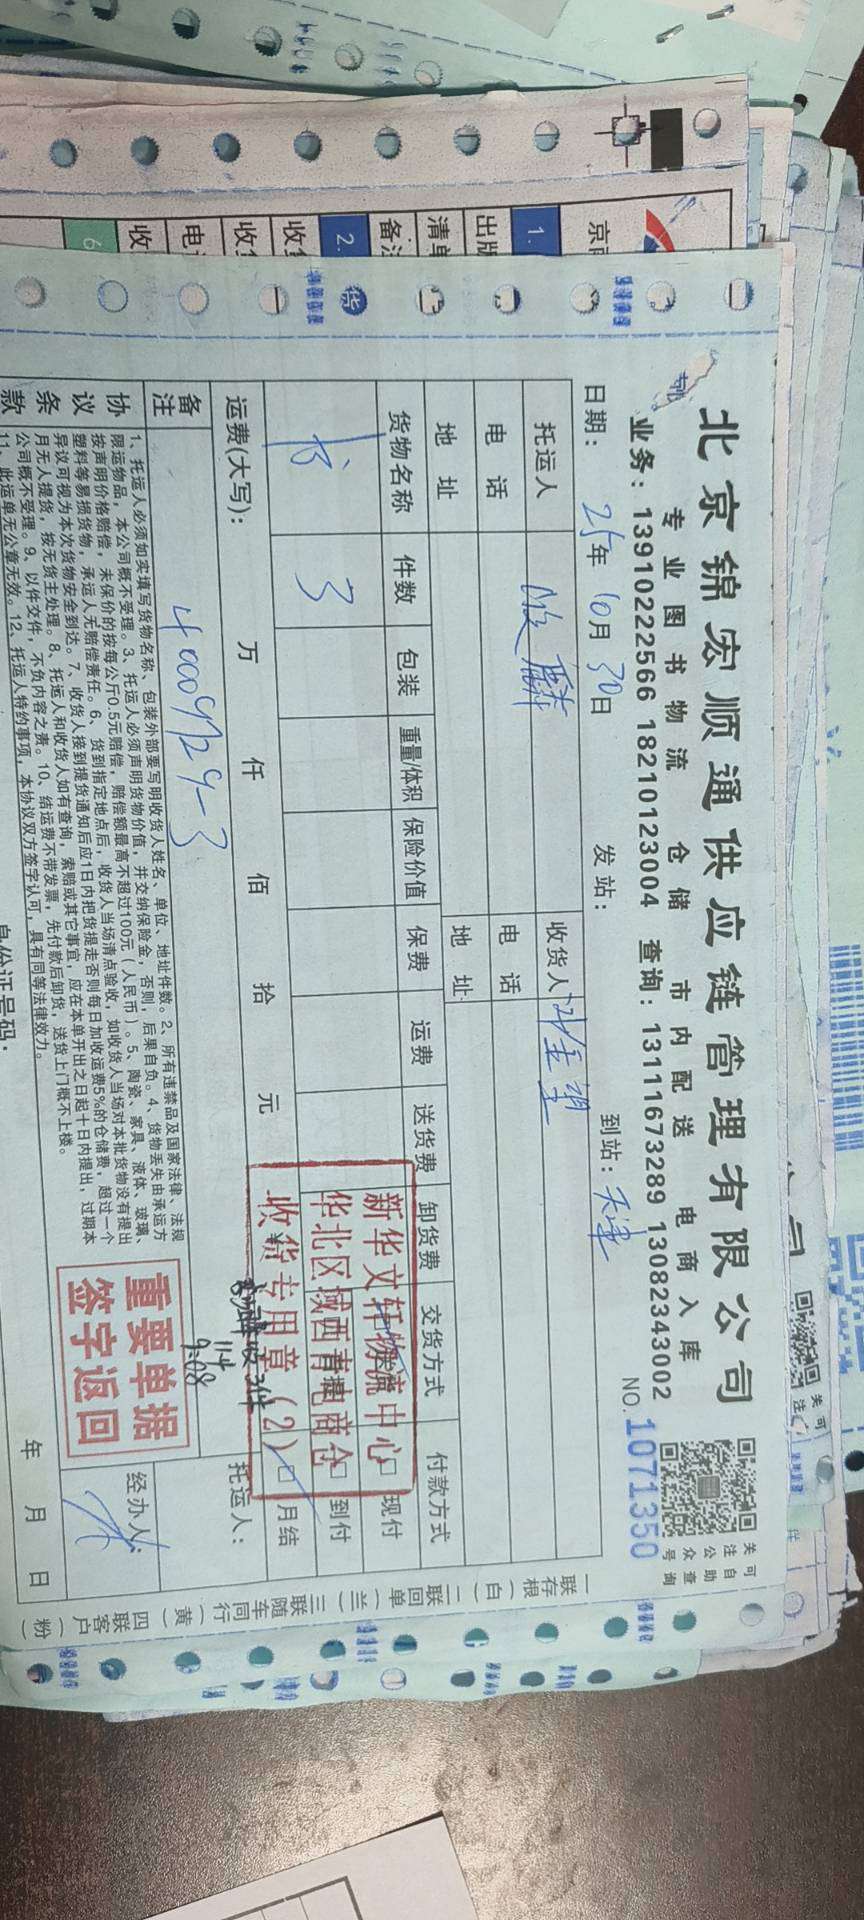 北京锦宏顺通供应链管理有限公司
专业图书物流 仓储 市内配送 电商入库
业务：13910222566 18210123004 查询：13111673289 13082343002
关注公众号
可自助查询
NO. 1071350
日期： 25年10月30日 发站： 到站：天津
托运人 收货人
电话 电话
地址 地址
货物名称 件数 包装 重量/体积 保险价值 保费 运费 送货费 卸货费 交货方式 付款方式
书 3
现付
到付
月结
运费(大写)： 万 仟 佰 拾 元
新华文轩物流中心
华北区域西青电商仓
收货专用章（2）
备注
11.4
9:08
托运人：
协议条款
1、托运人必须如实填写货物名称、包装外部要写明收货人姓名、单位、地址件数。2、所有违禁品及国家法律、法规
限运物品，本公司概不受理。3、托运人必须声明货物价值，并交纳保险金，否则，后果自负。4、货物丢失由承运方
按声明价格赔偿，未保价的按每公斤0.5元赔偿，赔偿额最高不超过100元（人民币）。5、陶瓷、家具、液体、玻璃、
塑料等易损货物，承运人无赔偿责任。6、货到指定地点后，收货人当场清点验收，如收货人当场对本批货物没有提出
异议可视为本次货物安全到达。7、收货人接到提货通知后应1日内把货提走否则每日加收运费5%的仓储费，超过一个
月无人提货，按无货主处理。8、托运人和收货人如有查询，索赔或其它事宜，应在本单开出之日起十日内提出，过期本
公司概不受理。9、以件交件，不负内容之责。10、结运费不带发票，先付款后卸货，送货上门概不上楼。
11、此运单无公章无效。12、托运人特约事项，本协议双方签字认可，具有同等法律效力。
重要单据
签字返回
经办人：
身份证号码：
年 月 日
一联存根（白） 二联回单（兰） 三联随车同行（黄） 四联客户（粉）